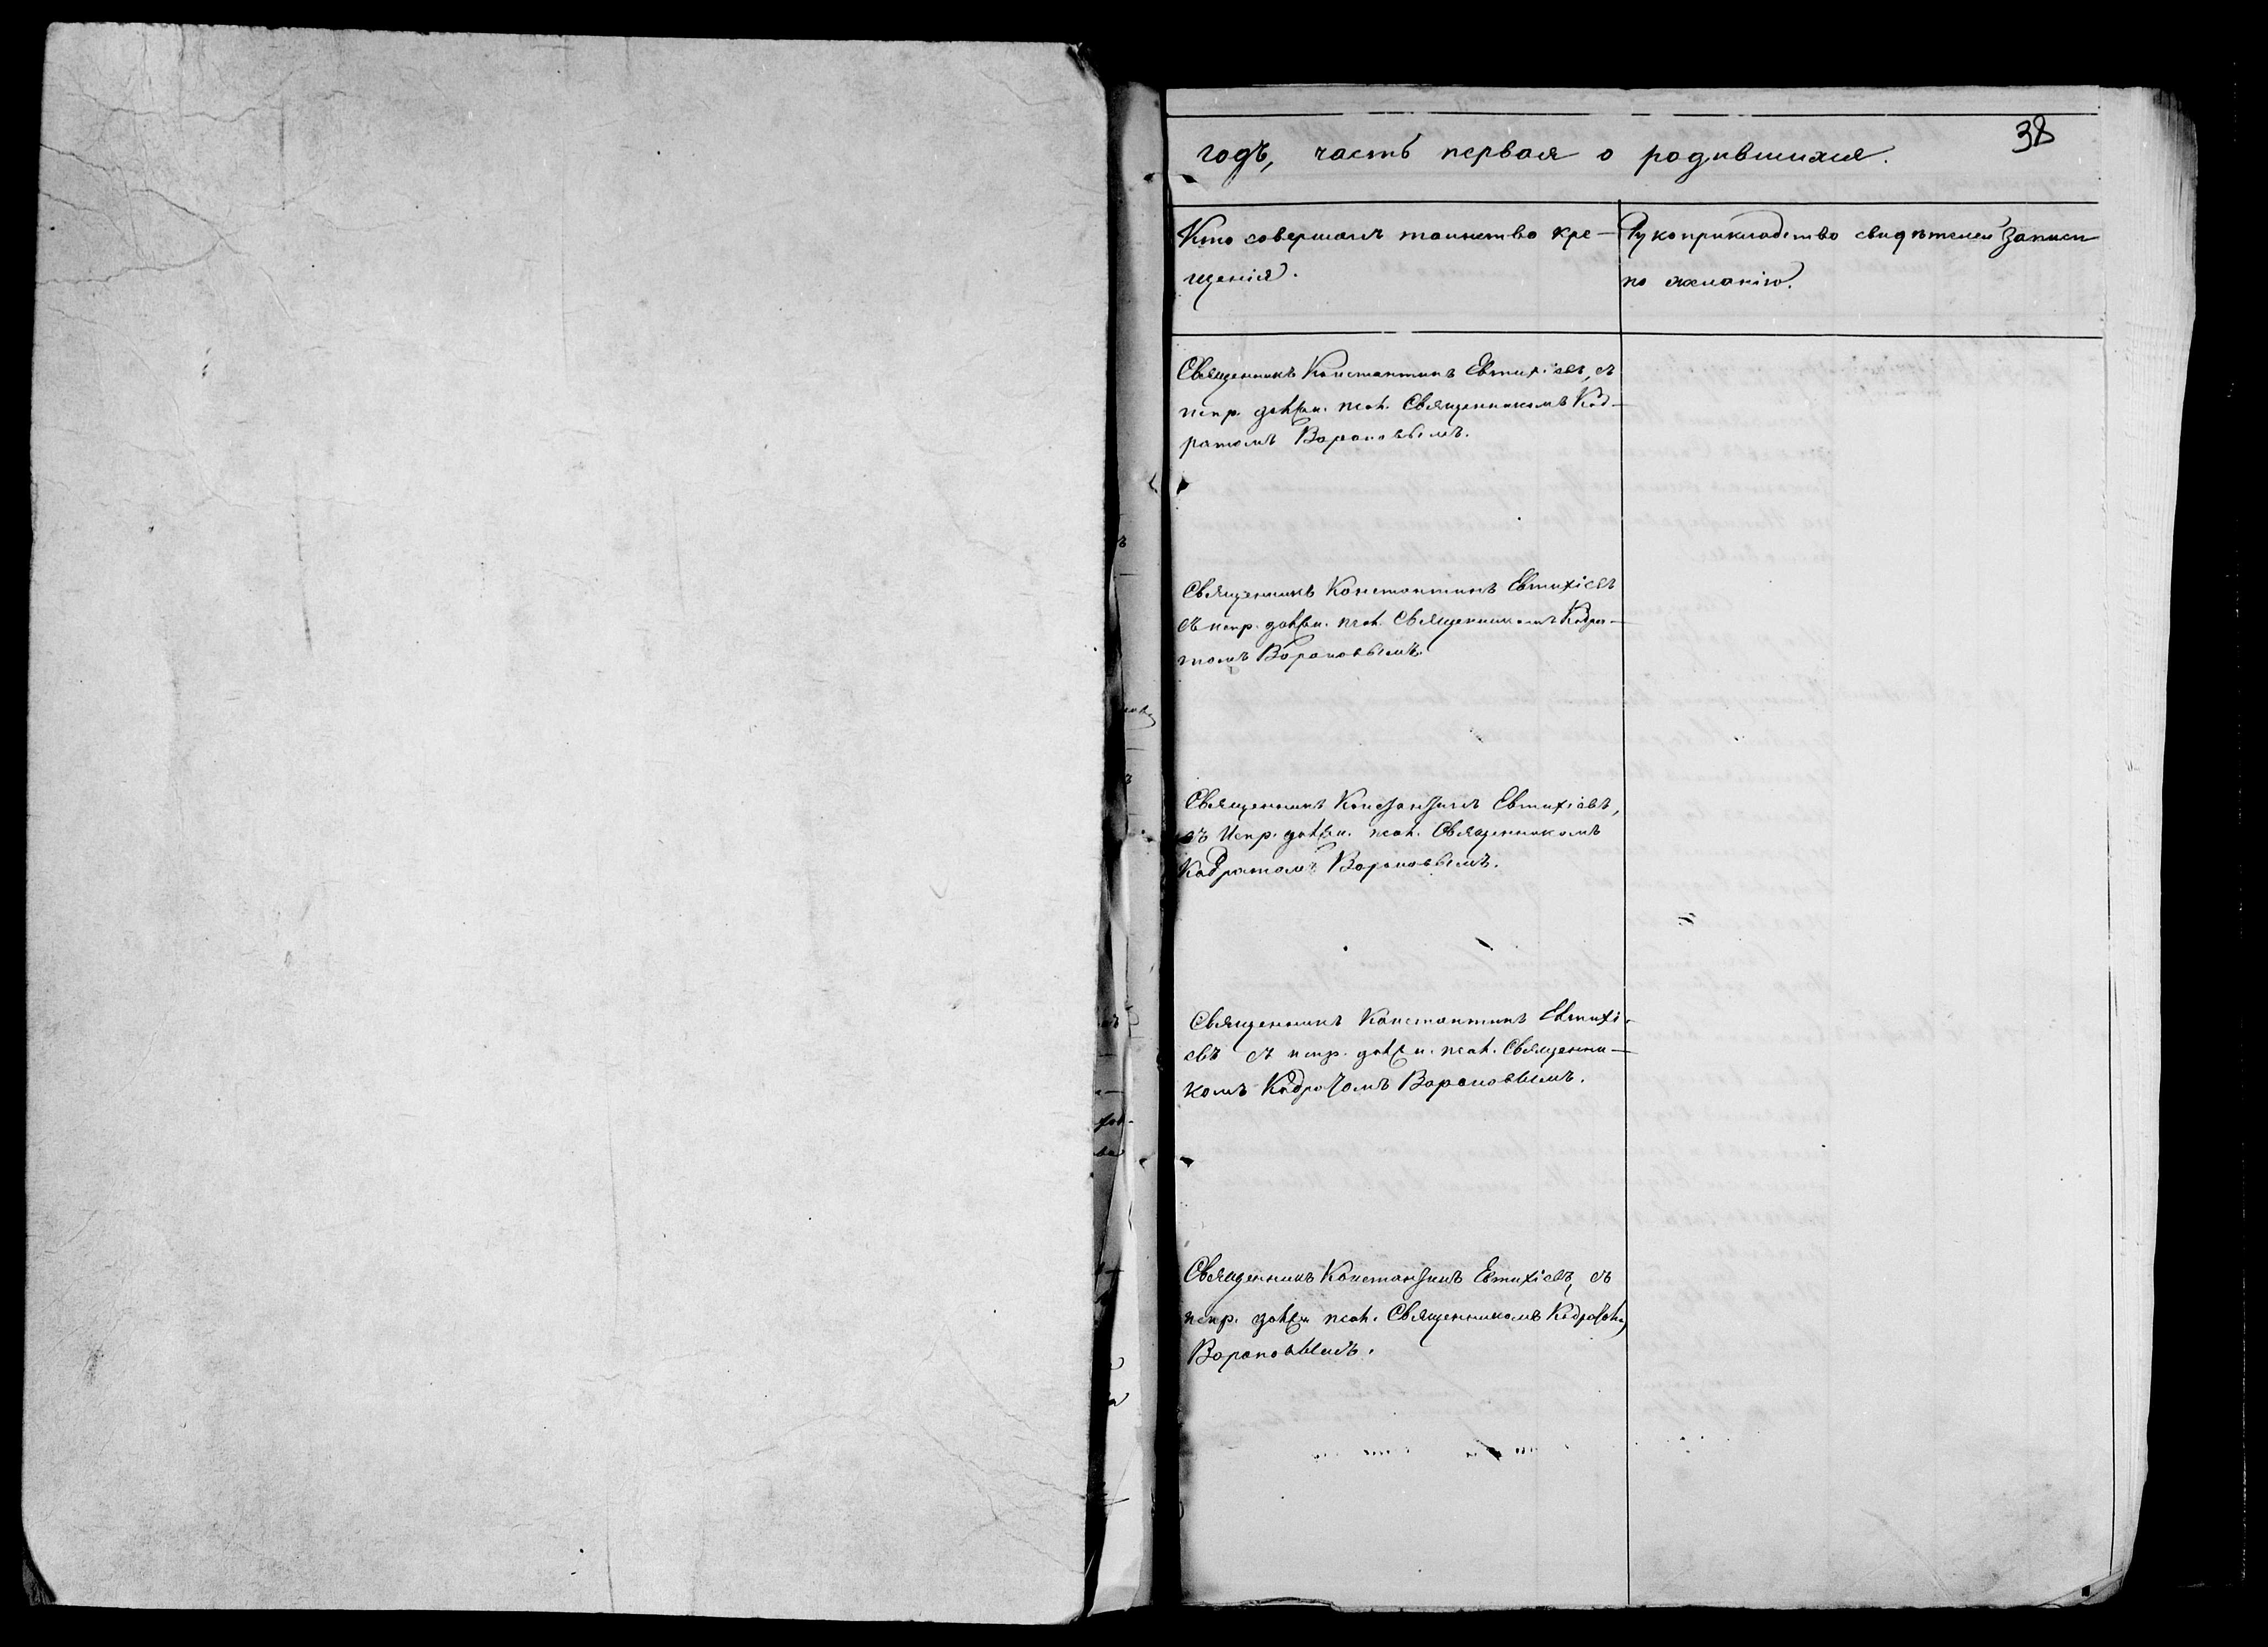 38
годъ, часть первая о родившихся.
Кто совершалъ таинство кре-
щенія.
Рукоприкладство свидѣтелей записи
по желанію.
Священникъ Константинъ Евтихіевъ, съ
испр. долж. псал. Священникомъ Код-
ратомъ Вороновымъ.
Священникъ Константинъ Евтихіевъ
съ испр. долж. псал. Священникомъ Кодра-
томъ Вороновымъ.
Священникъ Константинъ Евтихіевъ,
съ Испр. долж. псал. Священникомъ
Кодратомъ Вороновымъ.
Священникъ Константинъ Евтихі-
евъ съ испр. долж. псал. Священни-
комъ Кодратомъ Вороновымъ.
Священникъ Константинъ Евтихіевъ, съ
испр. долж. псал. Священникомъ Кодратомъ
Вороновымъ.